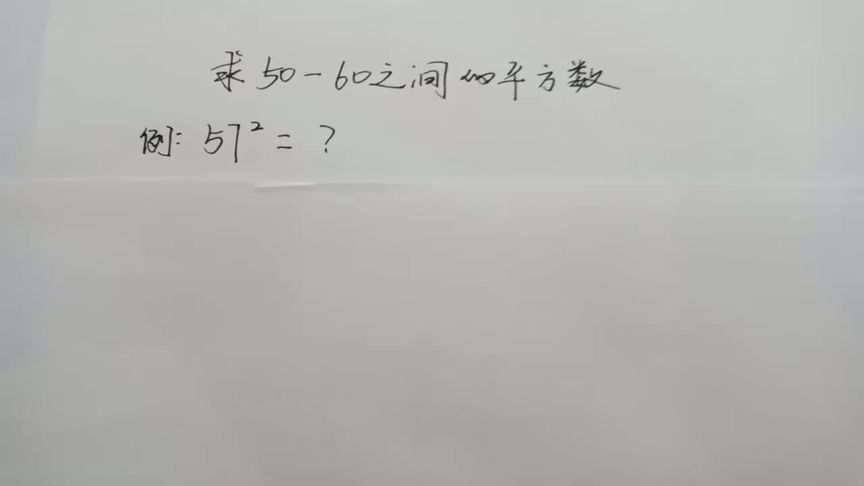 求50-60之间的平方数
例: 57² = ?